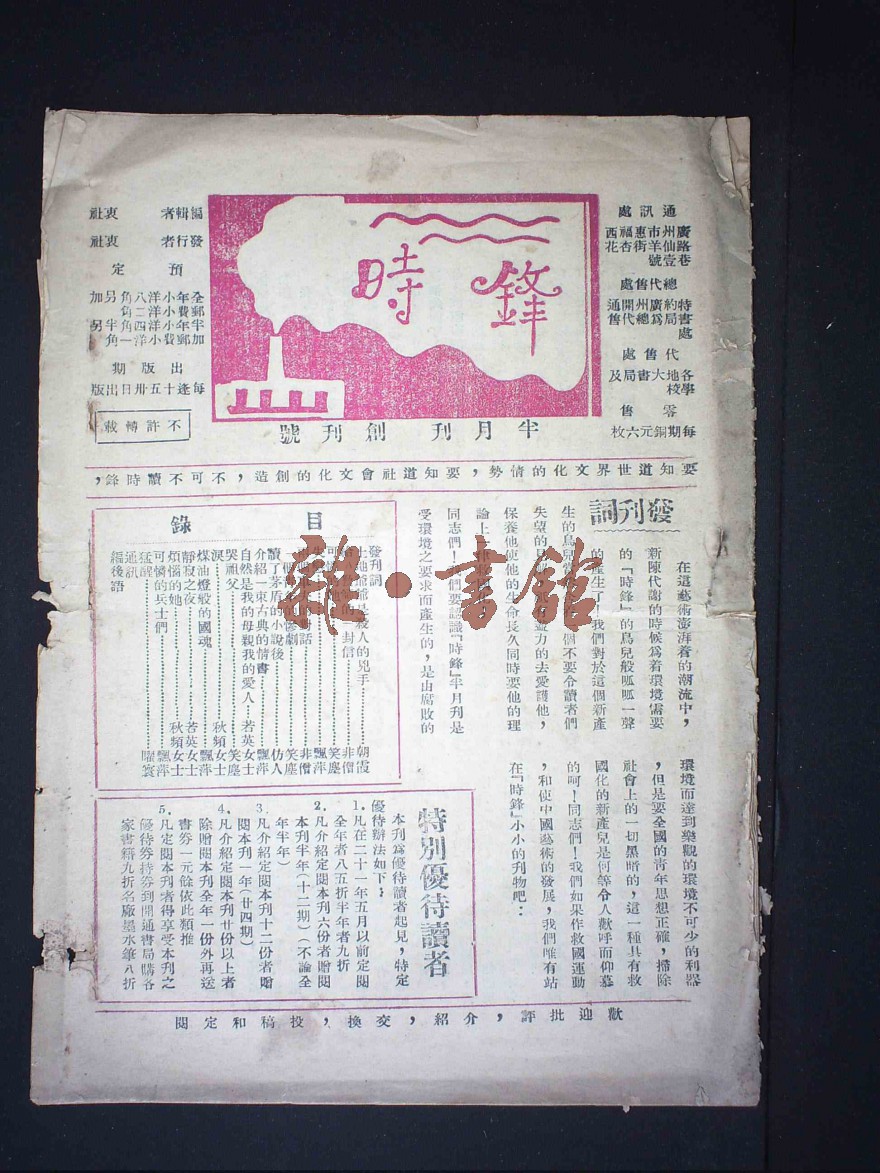 時鋒
半月刊 創刊號
通訊處
廣州市惠福西
路仙羊街杏花
巷壹號
總代售處
特約廣州開通
書局爲總代售
處
代售處
各地大書局及
學校
零售
每期銅元六枚
編輯者 衷社
發行者 衷社
預定
全年小洋八角另加
郵費小洋二角
半年小洋四角半另
加郵費小洋一角
出版期
每逢十五卅日出版
不許轉載
要知道世界文化的情勢，要知道社會文化的創造，不可不讀時鋒，
發刊詞
在這藝術澎湃着的潮流中，
新陳代謝的時候爲着環境需要
的『時鋒』的鳥兒般呱呱一聲
的產生了！我們對於這個新產
生的鳥兒 個不要令讀者們
失望的 力的去愛護他，
保養他使他的生命長久同時要他的理
論上
同志們！我們要認識『時鋒』半月刊是
受環境之要求而產生的，是由腐敗的
環境而達到樂觀的環境不可少的利器
，但是要全國的青年思想正確，掃除
社會上的一切黑暗的，這一種具有救
國化的新產兒是何等令人歡呼而仰慕
的呵！同志們！我們如果作救國運動
，和使中國藝術的發展，我們唯有站
在『時鋒』小小的刊物吧：
目錄
發刊詞
土地爺爺是殺人的兇手 朝霞
封信 非僧
可憐 笑塵
飄萍
對話 非僧
慘劇 笑塵
讀了茅盾的小說後 仿人
介紹一束古典的情書 飄萍
自然是我的母親我的愛人 若英女士
哭祖父 笑塵
淚 秋頻女士
煤油燈般的國魂 飄萍
靜寂之夜 若英女士
煩惱的她 秋頻女士
可憐的兵士們 飄萍
猛醒 曙寰
通訊
編後語
特別優待讀者
本刊爲優待讀者起見，特定
優待辦法如下：
1.凡在二十一年五月以前定閱
全年者八五折半年者九折
2.凡介紹定閱本刊六份者贈閱
本刊半年（十二期）（不論全
年半年）
3.凡介紹定閱本刊十二份者贈
閱本刊一年（廿四期）
4.凡介紹定閱本刊廿份以上者
除贈閱本刊全年一份外再送
書券一元餘依此類推
5.凡定閱本刊者得享受本刊之
優待券持券到開通書局購各
家書籍九折名廠墨水筆八折
歡迎批評，介紹，交換，投稿和定閱
雜·書館